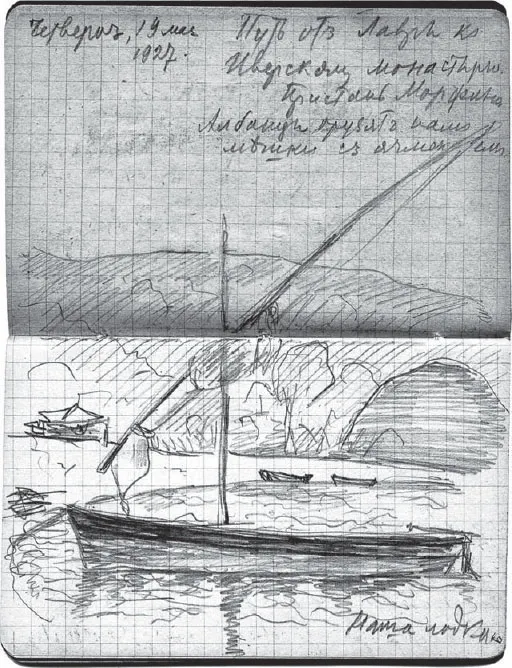 Четверг, 19 мая
1927.
Путь отъ Лавры ко
Иверскому монастырю.
Пристань
Албанцы грузятъ
мѣшки съ ячменемъ
Наша лодка